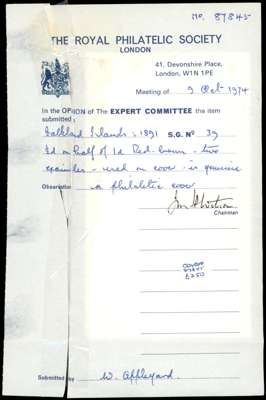 No. 87845
THE ROYAL PHILATELIC SOCIETY
LONDON
41, Devonshire Place,
London, W1N 1PE
Meeting of 9 Oct 1974
In the OPINION of The EXPERT COMMITTEE the item
submitted:
Falkland Islands: 1891 S.G. No 39
½d on half of 1d Red-brown - two
examples - used on cover - is genuine
Observations a philatelic cover
Chairman
£250
Submitted by W. Appleyard.